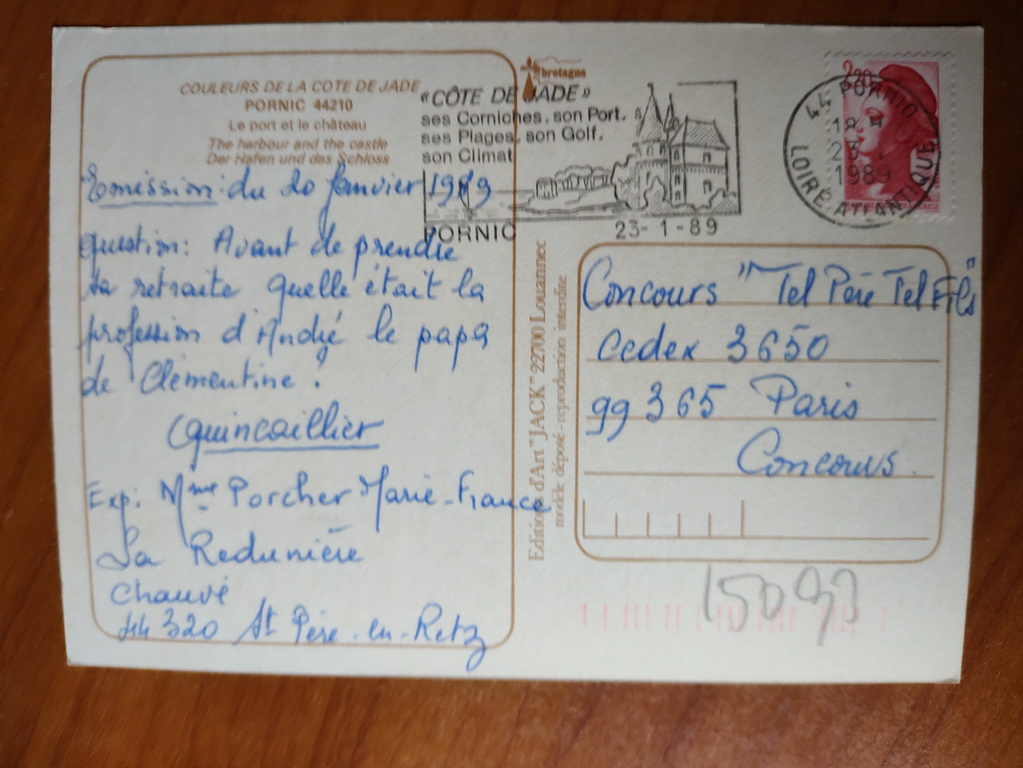 COULEURS DE LA COTE DE JADE
PORNIC 44210
Le port et le château
The harbour and the castle
Der Hafen und das Schloss
bretagne
«CÔTE DE JADE»
ses Corniches, son Port.
ses Plages, son Golf.
son Climat
PORNIC
23-1-89
2,20
44 PORNIC
18 H
23.1
1989
LOIRE ATLANTIQUE
Emission: du 20 Janvier 1989
question: Avant de prendre
sa retraite quelle était la
profession d'André le papa
de Clémentine.
Quincaillier
Exp: Mme Porcher Marie-France
La Redunière
Chauvé
44 320 St Père-en-Retz
Editions d'Art "JACK" 22700 Louannec
modèle déposé - reproduction interdite
Concours "Tel Père Tel Fils"
Cedex 3650
99 365 Paris
Concours.